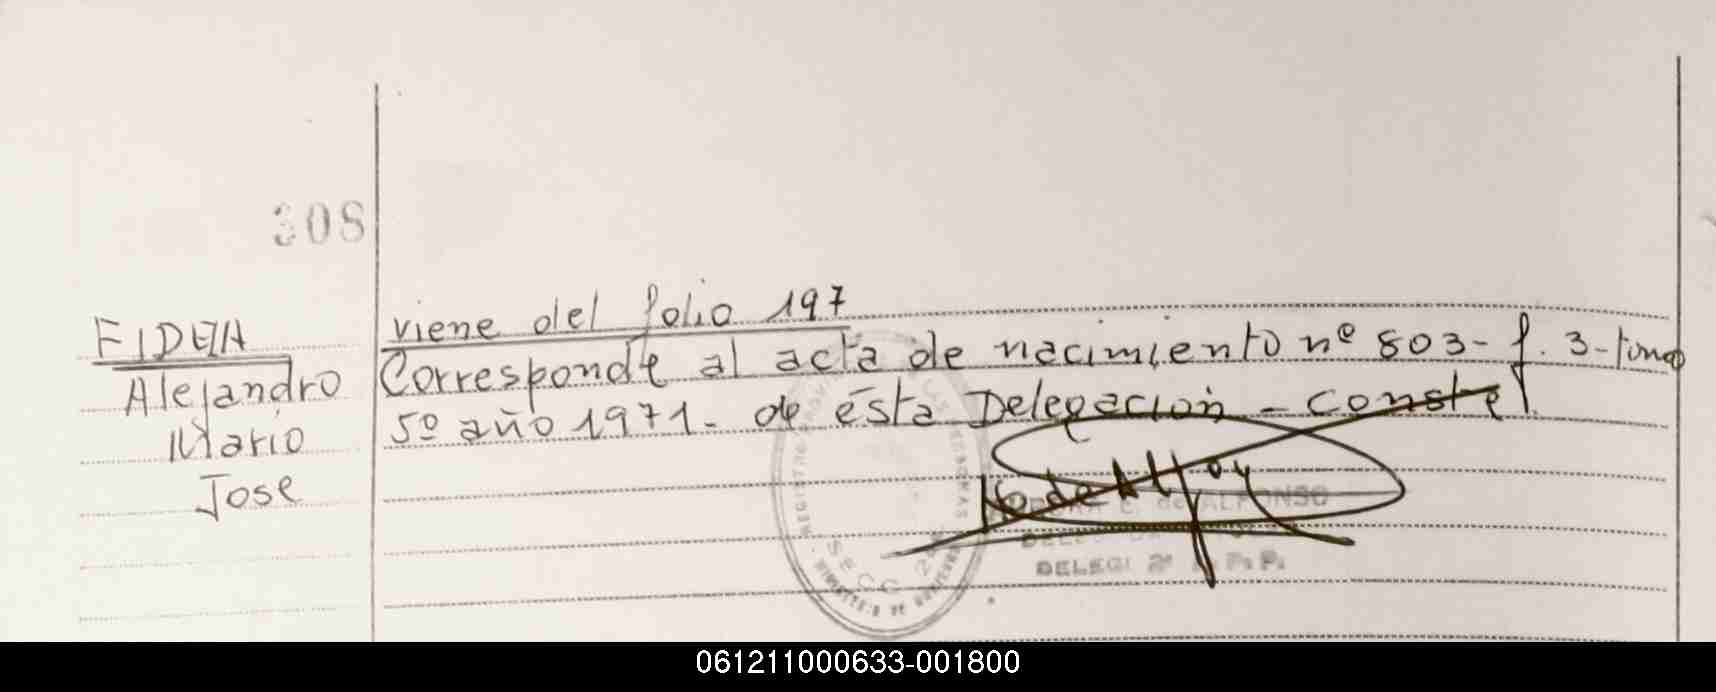 308
viene del folio 197
FIDEZA
Corresponde al acta de nacimiento nº 803- f. 3-tomo
Alejandro
5º año 1971- de ésta Delegación - conste
Mario
Jose
de ALFONSO
DELEG. 2ª P.P.
SECC 2ª
061211000633-001800